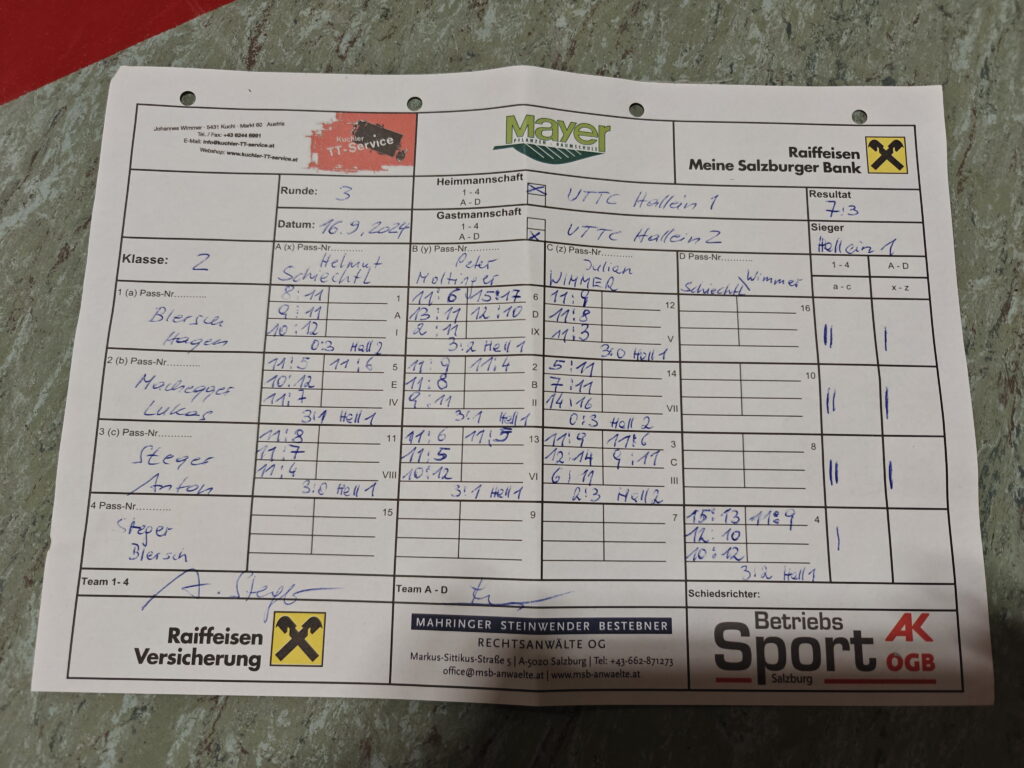 Johannes Wimmer · 5431 Kuchl · Markt 60 Austria
Tel. / Fax: +43 6244 6981
E-Mail: info@kuchler-TT-service.at
Webshop: www.kuchler-TT-service.at
Kuchler
TT-Service
Mayer
PFLANZEN · BAUMSCHULE
Raiffeisen
Meine Salzburger Bank
Runde: 3
Heimmannschaft
1 - 4
A - D
UTTC Hallein 1
Resultat
7:3
Datum: 16.9.2024
Gastmannschaft
1 - 4
A - D
UTTC Hallein 2
Sieger
Hallein 1
Klasse: 2
A (x) Pass-Nr.
Helmut
Schiechtl
B (y) Pass-Nr.
Peter
Moltinger
C (z) Pass-Nr.
Julian
WIMMER
D Pass-Nr.
Schiechtl Wimmer
1 - 4 A - D
a - c x - z
1 (a) Pass-Nr.
Blersch
Hagen
8:11 1
9:11 A
10:12 I
0:3 Hall 2
11:6 15:17 6
13:11 12:10 D
2:11 IX
3:2 Hall 1
11:9 12
11:8
11:3 V
3:0 Hall 1
16
|| |
2 (b) Pass-Nr.
Machegger
Lukas
11:5 11:6 5
10:12 E
11:7 IV
3:1 Hall 1
11:9 11:4 2
11:8 B
9:11 II
3:1 Hall 1
5:11 14
7:11
14:16 VII
0:3 Hall 2
10
|| |
3 (c) Pass-Nr.
Steger
Anton
11:8 11
11:7
11:4 VIII
3:0 Hall 1
11:6 11:5 13
11:5
10:12 VI
3:1 Hall 1
11:9 11:6 3
12:14 9:11 C
6:11 III
2:3 Hall 2
8
|| |
4 Pass-Nr.
Steger
Blersch
15
9
7
15:13 11:9 4
12:10
10:12
3:2 Hall 1
|
Team 1- 4
A. Steger
Team A - D
Schiedsrichter:
Raiffeisen
Versicherung
MAHRINGER STEINWENDER BESTEBNER
RECHTSANWÄLTE OG
Markus-Sittikus-Straße 5 | A-5020 Salzburg | Tel: +43-662-871273
office@msb-anwaelte.at | www.msb-anwaelte.at
Betriebs
Sport
Salzburg
AK
ÖGB